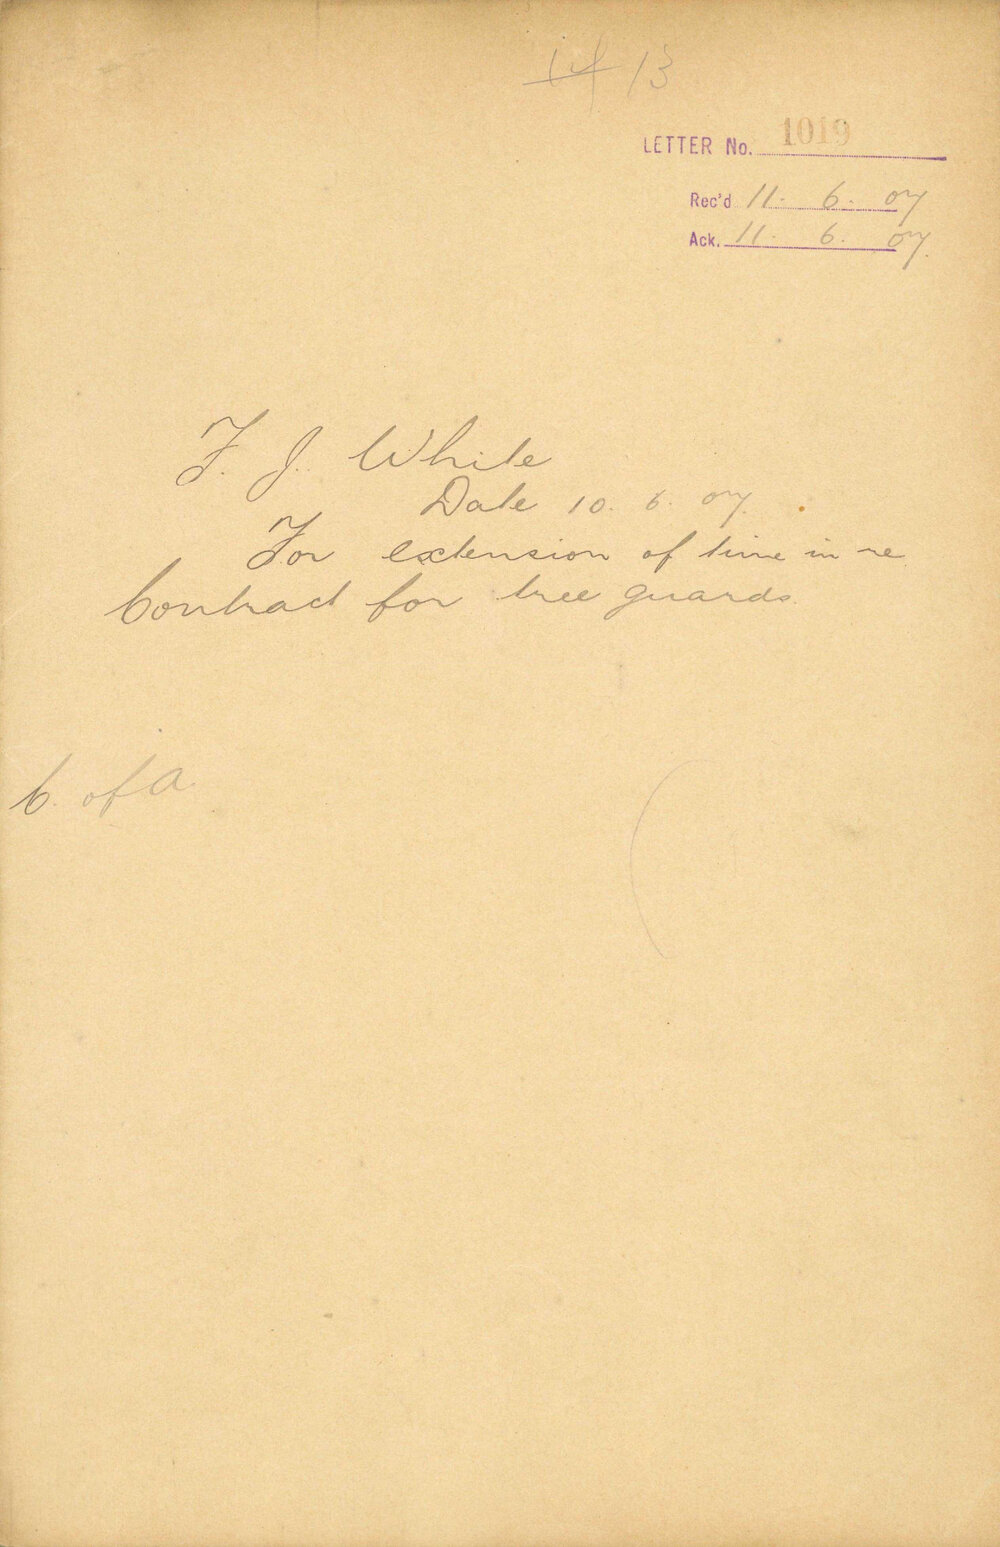 14 13
LETTER No. 1019
Rec'd 11. 6. 07
Ack. 11. 6. 07.
F. J. White
Date 10. 6. 07.
For extension of time in re
Contract for tree guards.
C. of A